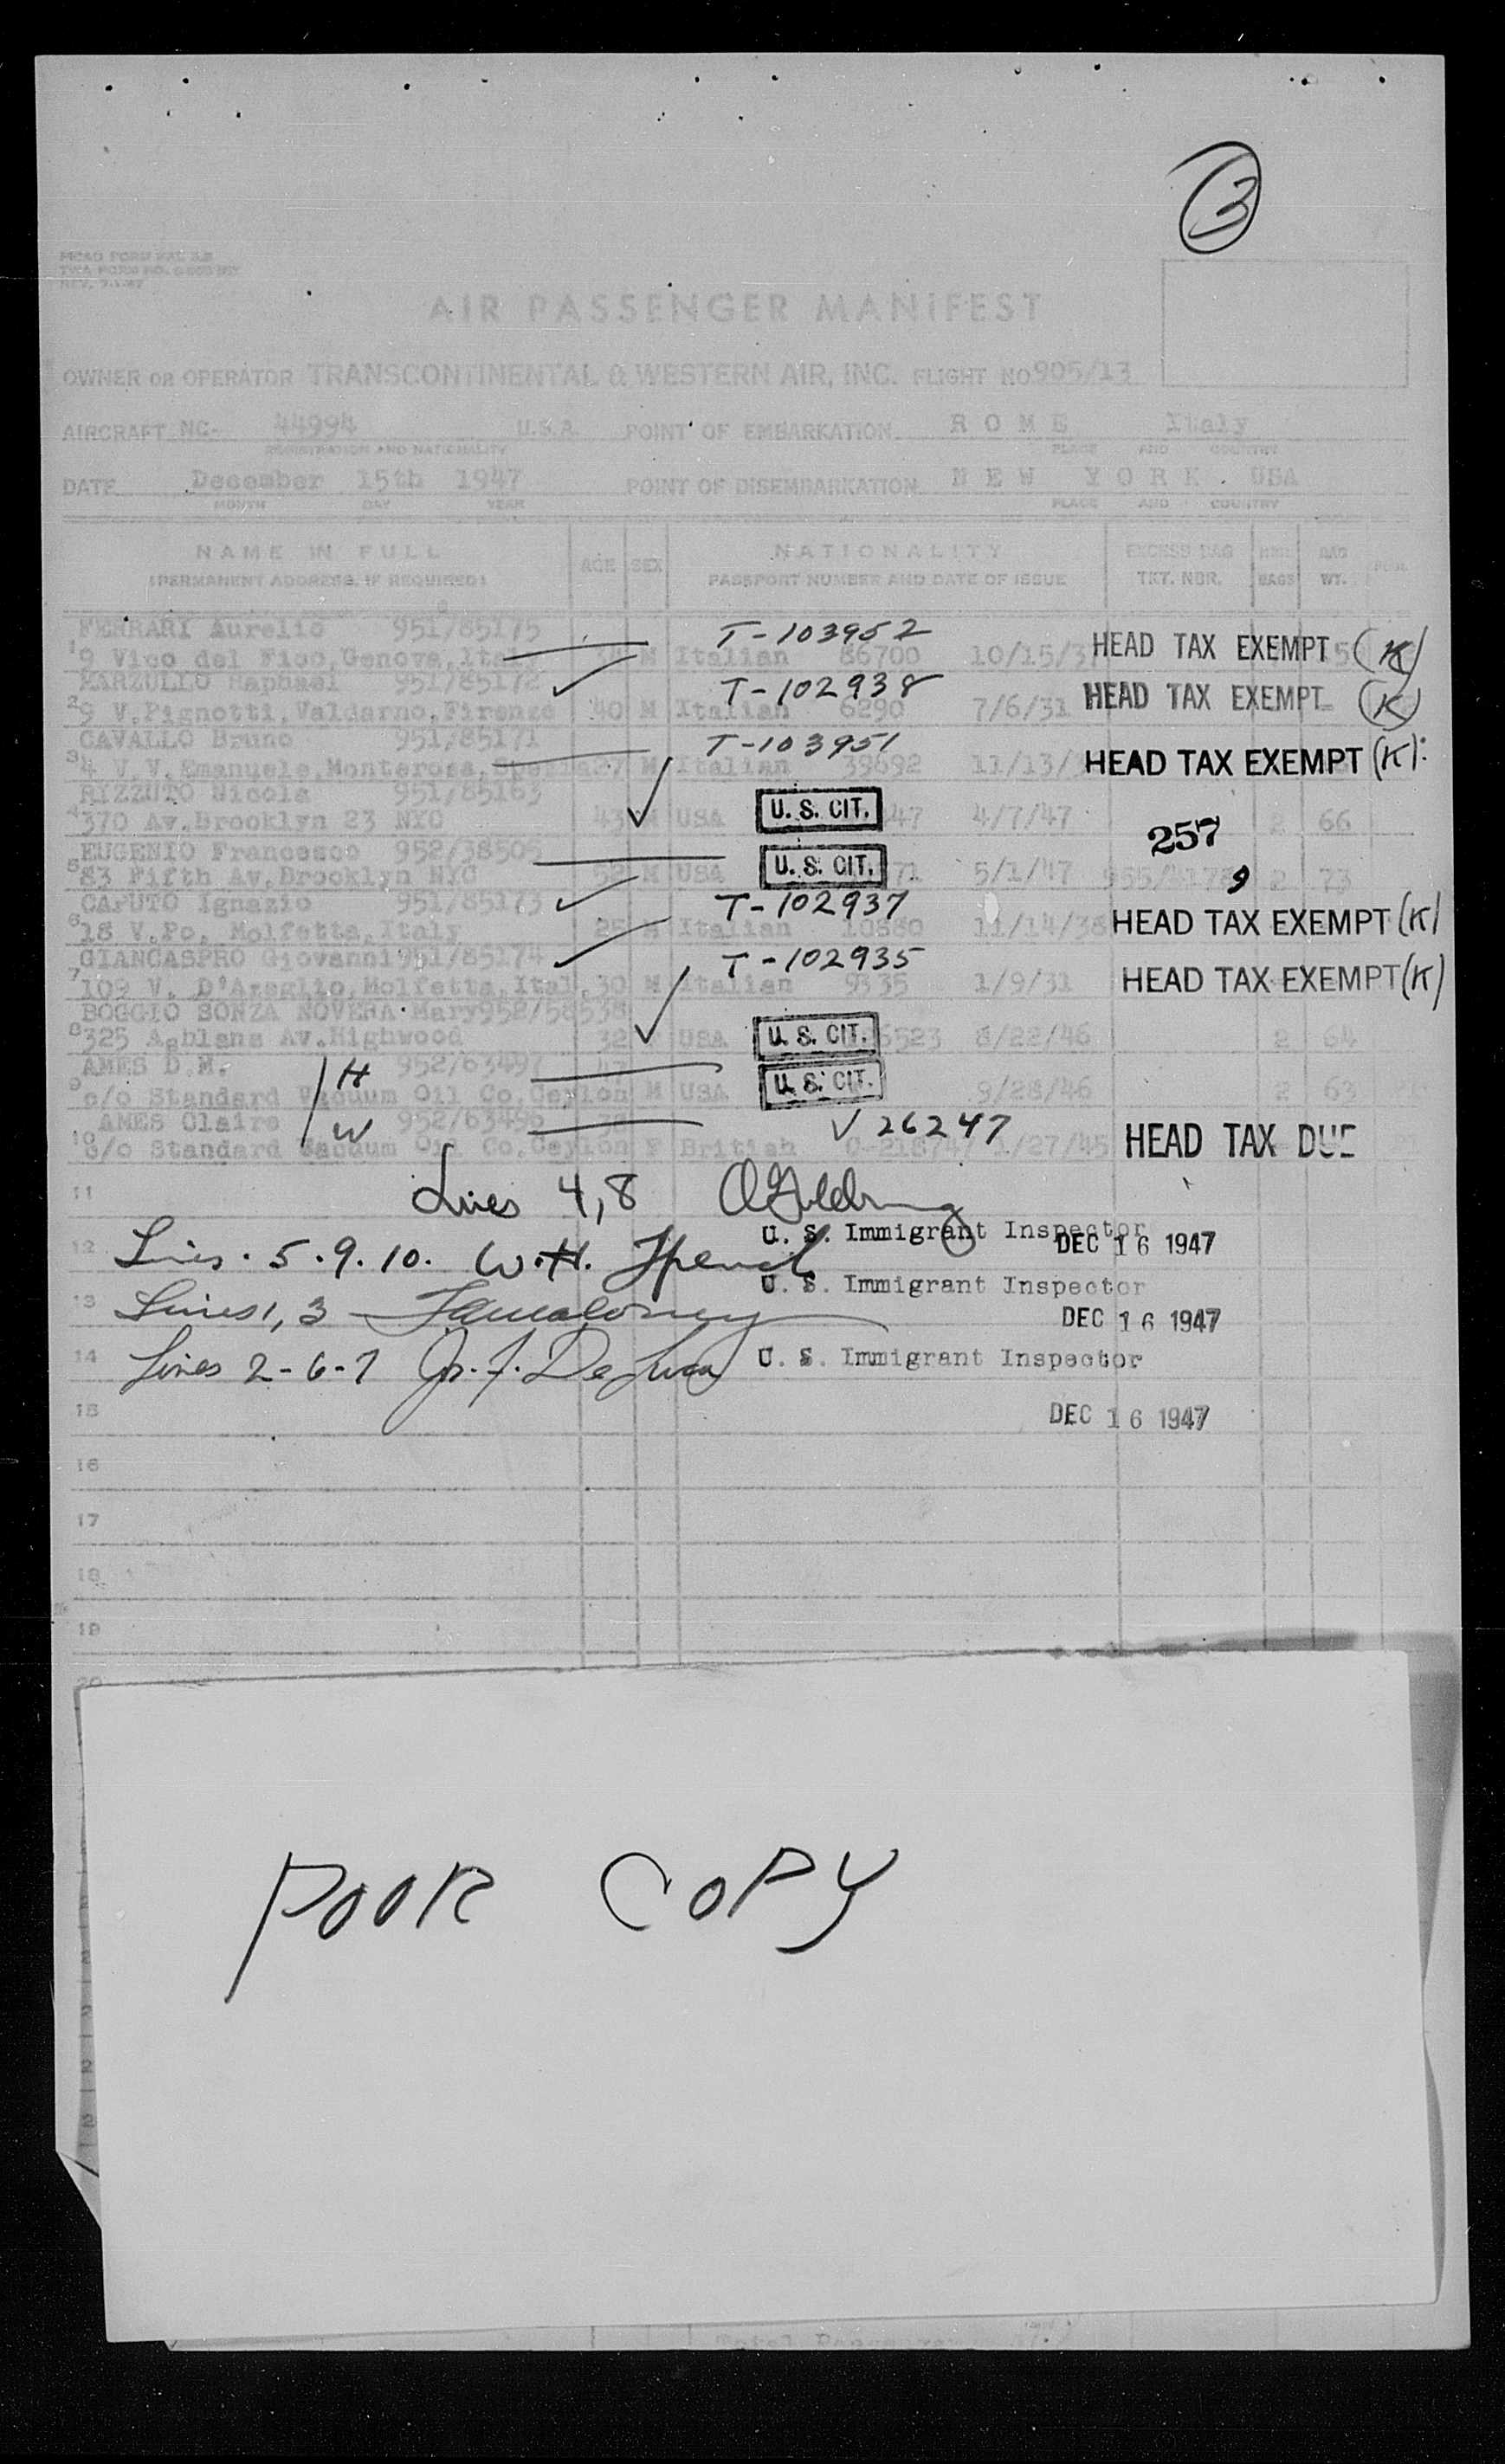 3
AIR PASSENGER MANIFEST
OWNER OR OPERATOR TRANSCONTINENTAL & WESTERN AIR, INC. FLIGHT NO 905/13
AIRCRAFT NC- 44994 U.S.A. POINT OF EMBARKATION R O M E Italy
REGISTRATION AND NATIONALITY PLACE AND COUNTRY
DATE December 15th 1947 POINT OF DISEMBARKATION N E W Y O R K . USA
MONTH DAY YEAR PLACE AND COUNTRY
NAME IN FULL AGE SEX NATIONALITY EXCESS BAG BAG
(PERMANENT ADDRESS, IF REQUIRED) PASSPORT NUMBER AND DATE OF ISSUE TKT. NBR. BAGS WT.
FERRARI Aurelio 951/85175 T-103952 HEAD TAX EXEMPT (K)
1 9 Vico del Fico, Genova, Italy M Italian 86700 10/15/3
MARZULLO Raphael 951/85172 T-102938 HEAD TAX EXEMPT (K)
2 9 V.Pignotti, Valdarno, Firenze 40 M Italian 6290 7/6/31
CAVALLO Bruno 951/85171 T-103951 HEAD TAX EXEMPT (K)
3 4 V.V. Emanuele, Monterosa, Spezia 27 M Italian 39692 11/13/
RIZZUTO Nicola 951/85163 U. S. CIT.
4 370 Av. Brooklyn 23 NYC 43 M USA 47 4/7/47 2 66
EUGENIO Francesco 952/38505 U. S. CIT. 257
5 83 Fifth Av, Brooklyn NYC 52 M USA 71 5/1/47 2 73
CAPUTO Ignazio 951/85173 T-102937 9
6 18 V.Po, Molfetta, Italy 25 M Italian 10880 11/14/38 HEAD TAX EXEMPT (K)
GIANCASPRO Giovanni 951/85174 T-102935
7 109 V. D'Azeglio, Molfetta, Ital. 30 M Italian 9335 1/9/31 HEAD TAX EXEMPT (K)
BOGGIO BONZA NOVERA Mary 952/58538
8 325 Ashlans Av. Highwood 32 USA U. S. CIT. 6523 8/22/46 2 64
AMES D.M. H 952/63497 U. S. CIT.
9 c/o Standard Vacuum Oil Co, Ceylon M USA 9/28/46 2 63
AMES Claire W 952/63496 V 26247
10 c/o Standard Vacuum Oil Co, Ceylon F British 1/27/45 HEAD TAX DUE
11 Lines 4,8
U. S. Immigrant Inspector DEC 16 1947
12 Lines. 5.9.10. W.H.
U. S. Immigrant Inspector
13 Lines 1, 3 DEC 16 1947
14 Lines 2-6-7 U. S. Immigrant Inspector
15 DEC 16 1947
16
17
18
19
20
POOR COPY